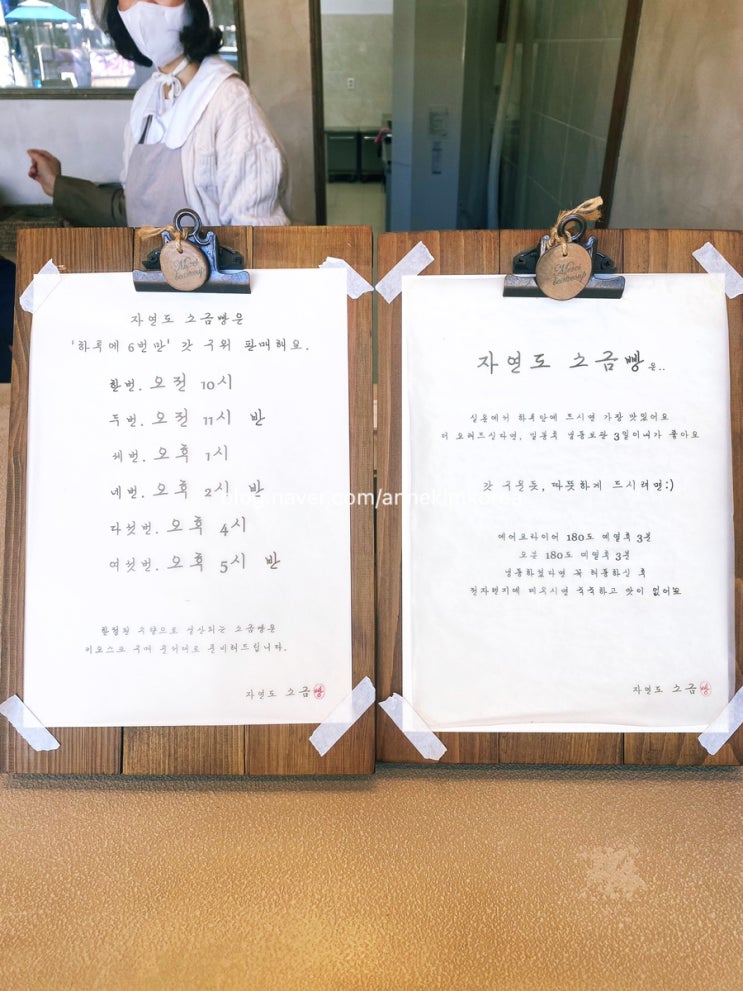 자연도 소금빵은
'하루에 6번만' 갓 구워 판매해요.
한번. 오전 10시
두번. 오전 11시 반
세번. 오후 1시
네번. 오후 2시 반
다섯번. 오후 4시
여섯번. 오후 5시 반
한정된 수량으로 생산되는 소금빵은
키오스크 구매 순서대로 준비해드립니다.
자연도 소금빵
자연도 소금빵은..
실온에서 하루안에 드시면 가장 맛있어요
더 오래두신다면, 밀봉후 냉동보관 3일이내가 좋아요
갓 구운듯, 따뜻하게 드시려면:)
에어프라이어 180도 예열후 3분
오븐 180도 예열후 3분
냉동하셨다면 꼭 해동하신 후
전자렌지에 데우시면 축축하고 맛이 없어요
자연도 소금빵
blog.naver.com/annekim